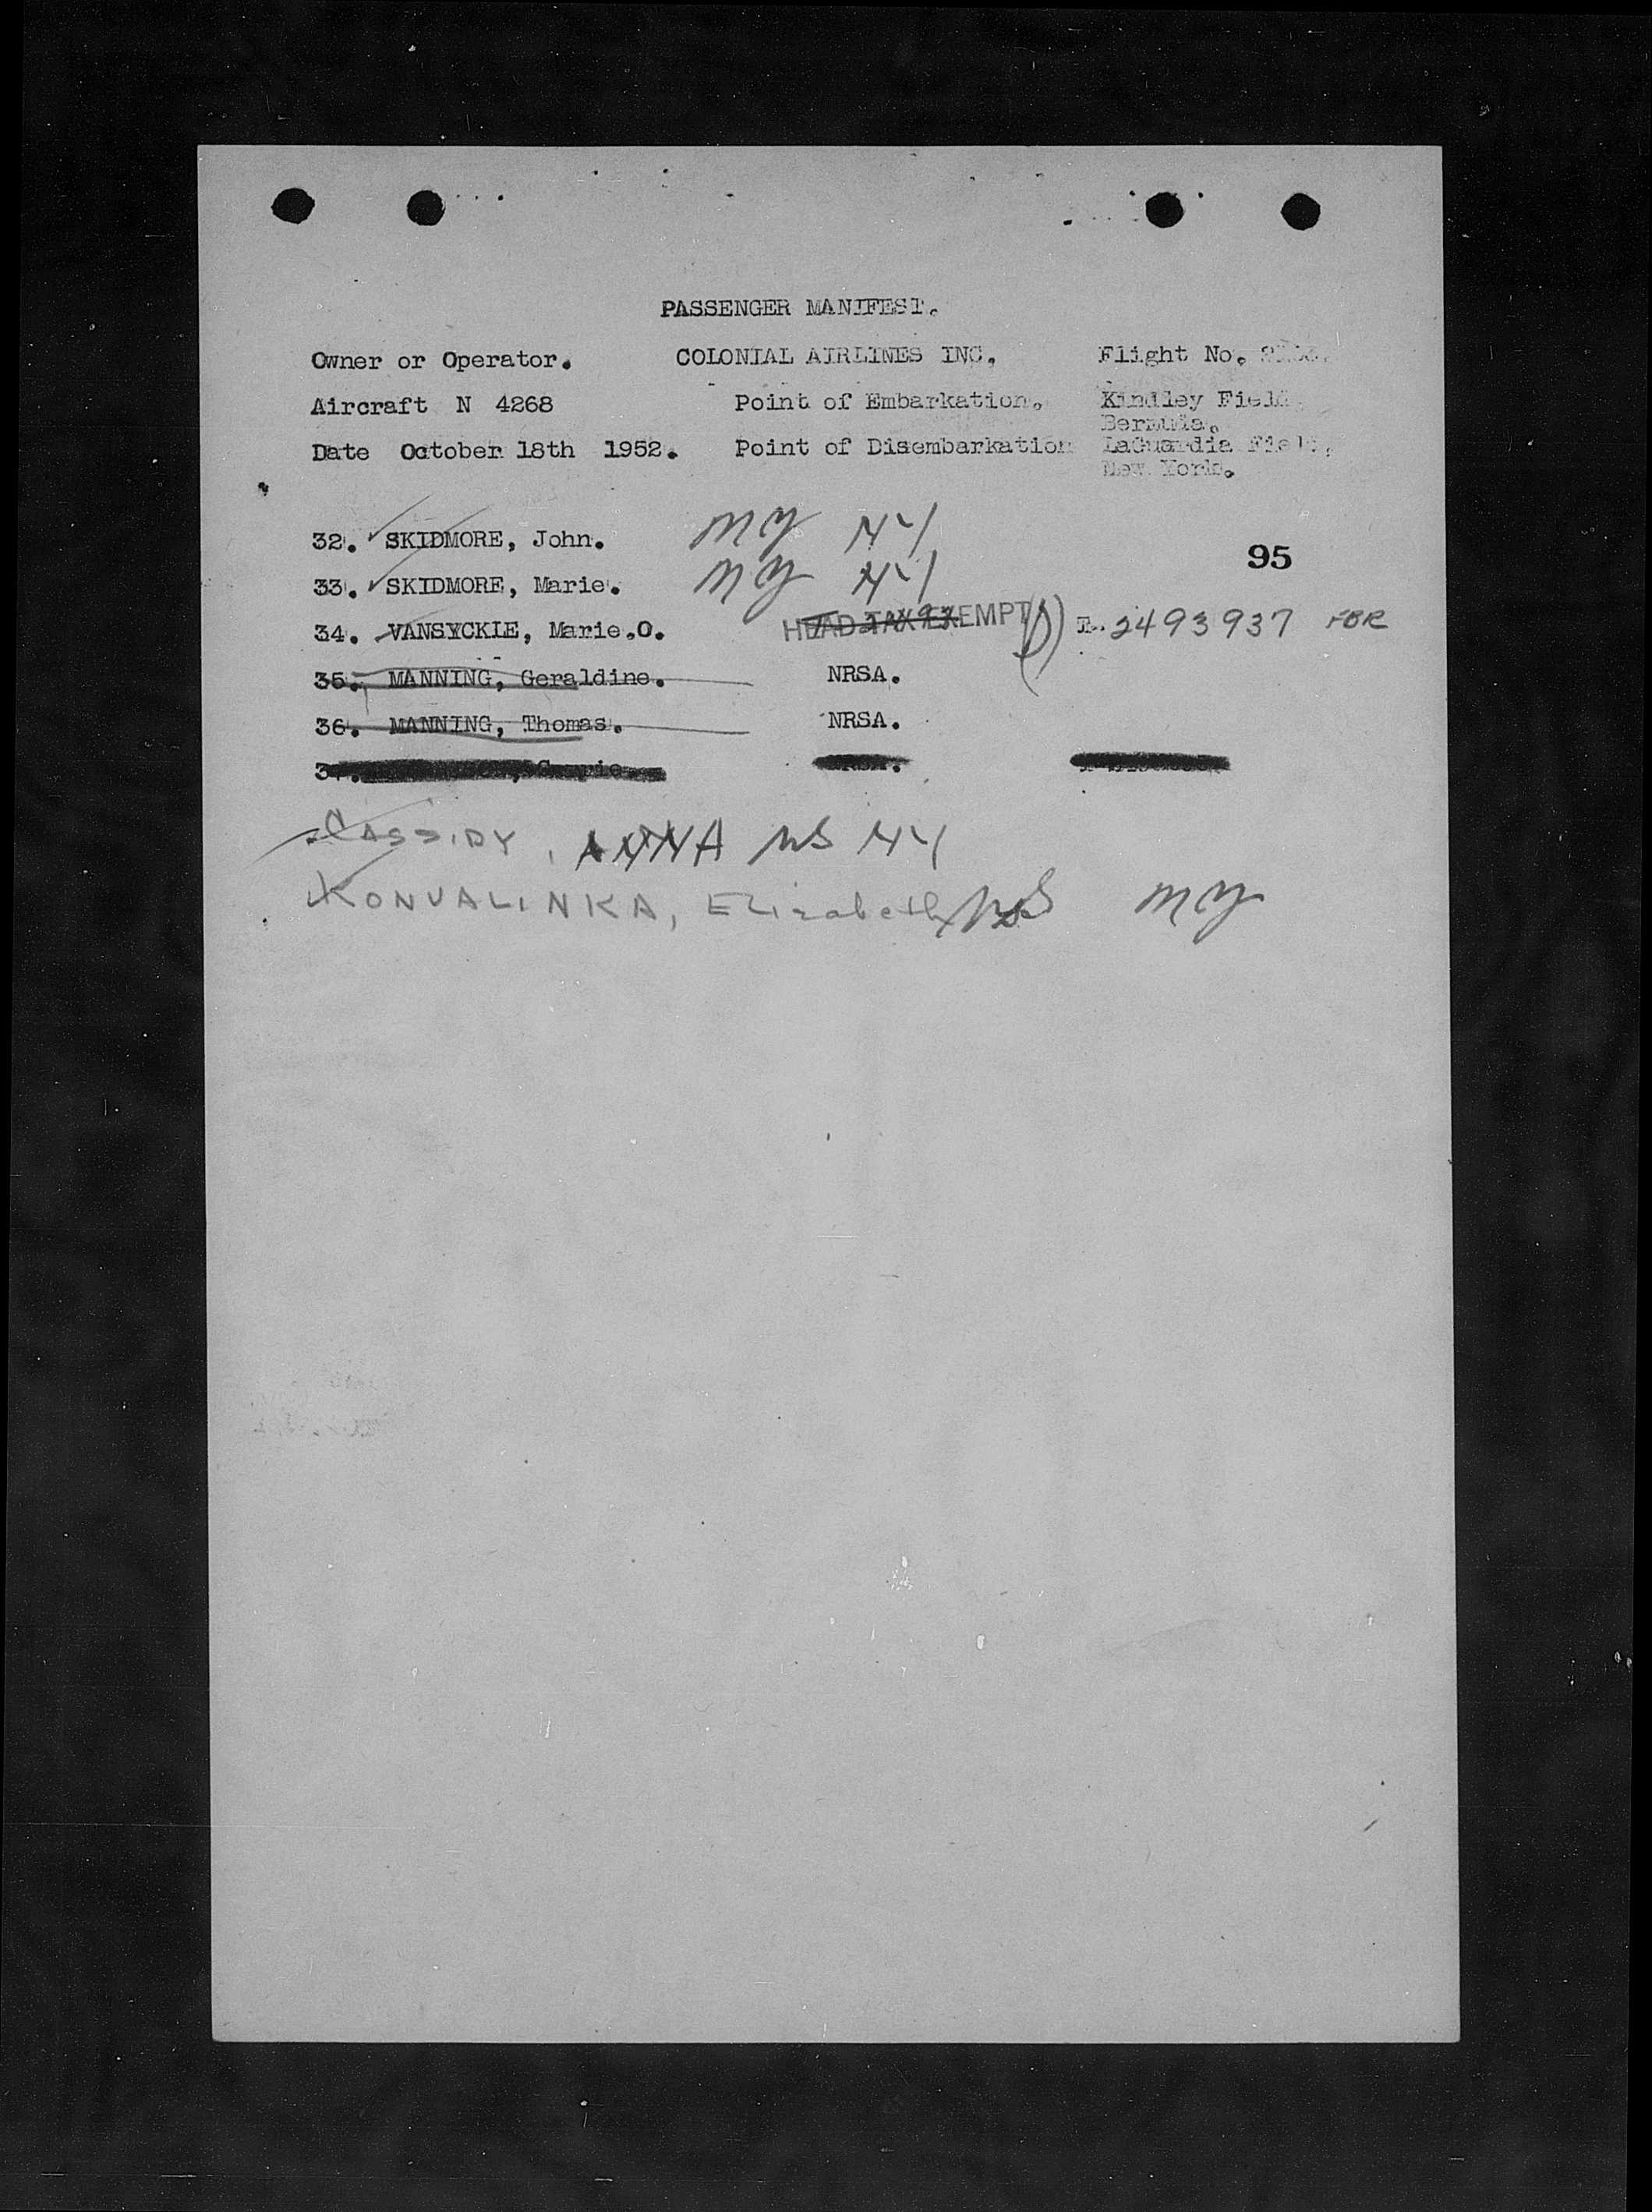 PASSENGER MANIFEST.
Owner or Operator. COLONIAL AIRLINES INC. Flight No.
Aircraft N 4268 Point of Embarkation. Kindley Field,
Bermuda.
Date October 18th 1952. Point of Disembarkation LaGuardia Field,
New York.
32. SKIDMORE, John. NY
95
33. SKIDMORE, Marie. NY
34. VANSYCKLE, Marie.O. HEAD TAX EXEMPT 2493937 FOR
35. MANNING, Geraldine. NRSA.
36. MANNING, Thomas. NRSA.
CASSIDY, ANNA NY
KONVALINKA, Elizabeth